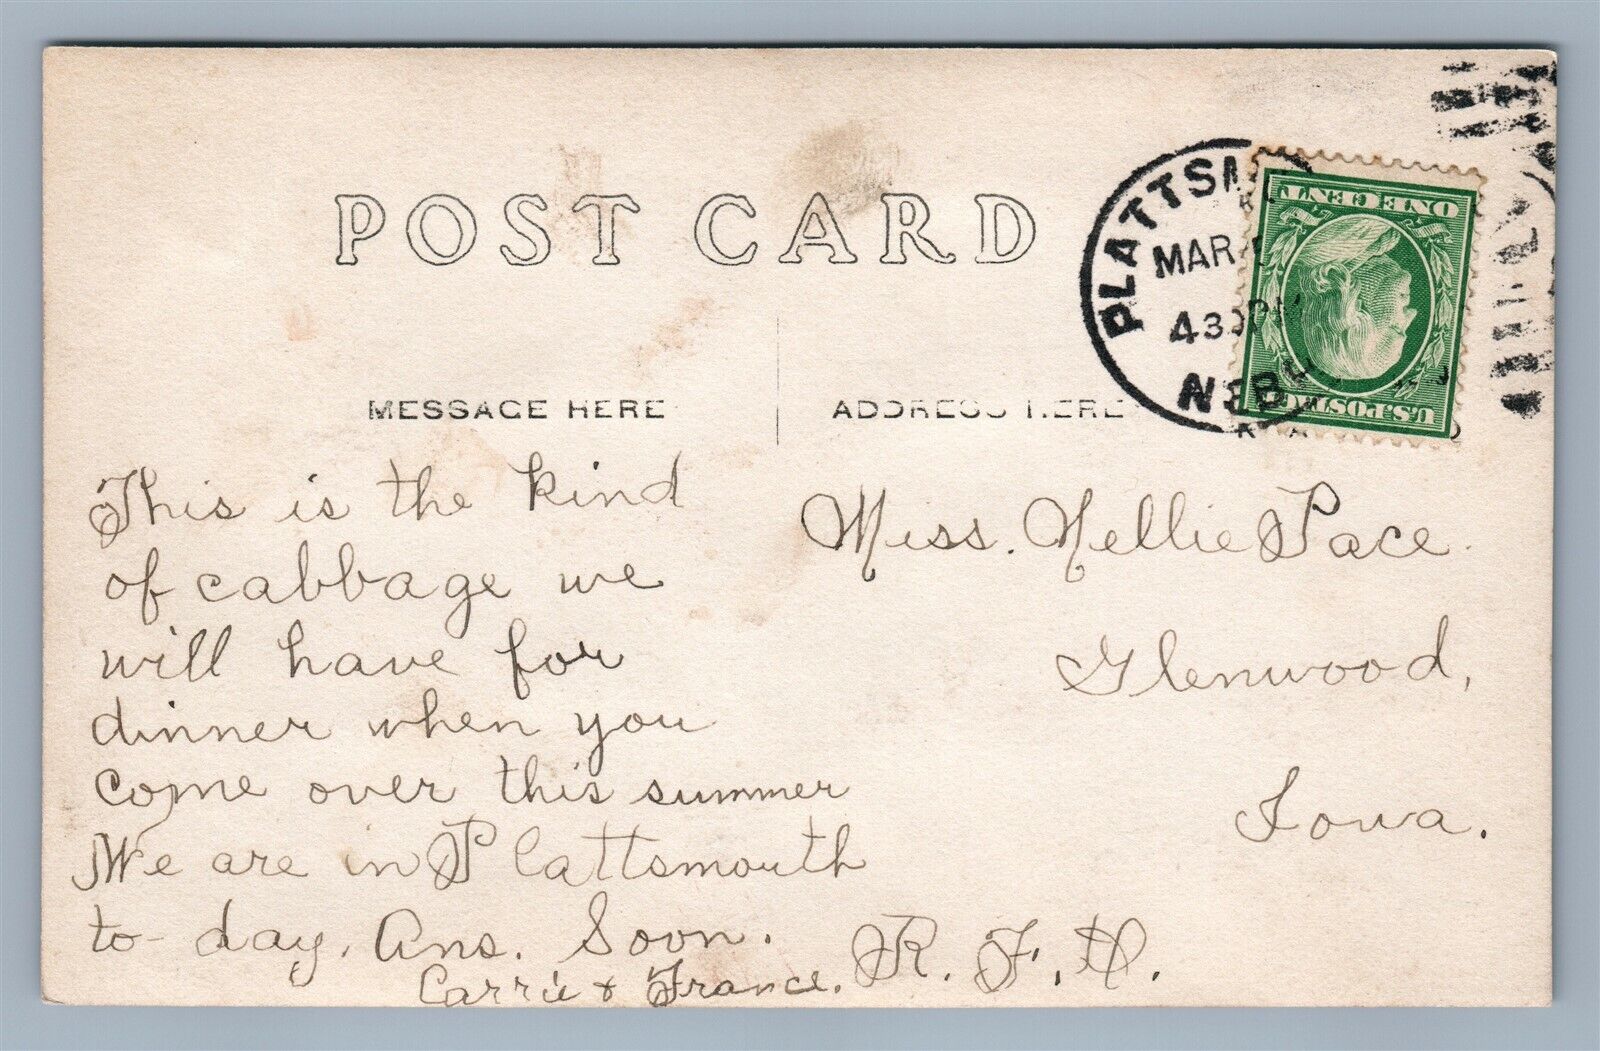 POST CARD
PLATTSM
MAR
430PM
NEBR
ONE CENT
U.S. POSTAGE
MESSAGE HERE
ADDRESS HERE
This is the kind
of cabbage we
will have for
dinner when you
come over this summer
We are in Plattsmouth
to-day. Ans. Soon.
Carrie & France.
Miss. Nellie Pace.
Glenwood,
Iowa.
R. F. D.